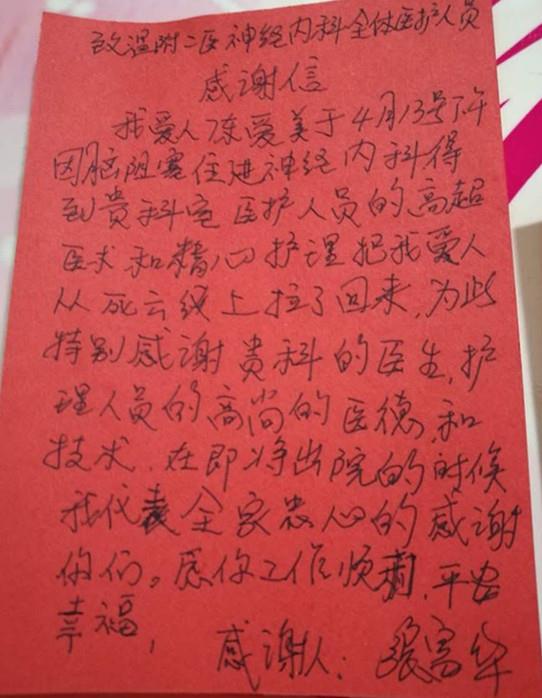 致温附二医神经内科全体医护人员
感谢信
我爱人陈爱美于4月13号下午
因脑阻塞住进神经内科得
到贵科室医护人员的高超
医术和精心护理把我爱人
从死亡线上拉了回来,为此
特别感谢贵科的医生,护
理人员的高尚的医德,和
技术.在即将出院的时候
我代表全家忠心的感谢
你们。愿你工作顺利,平安
幸福,
感谢人:张富华